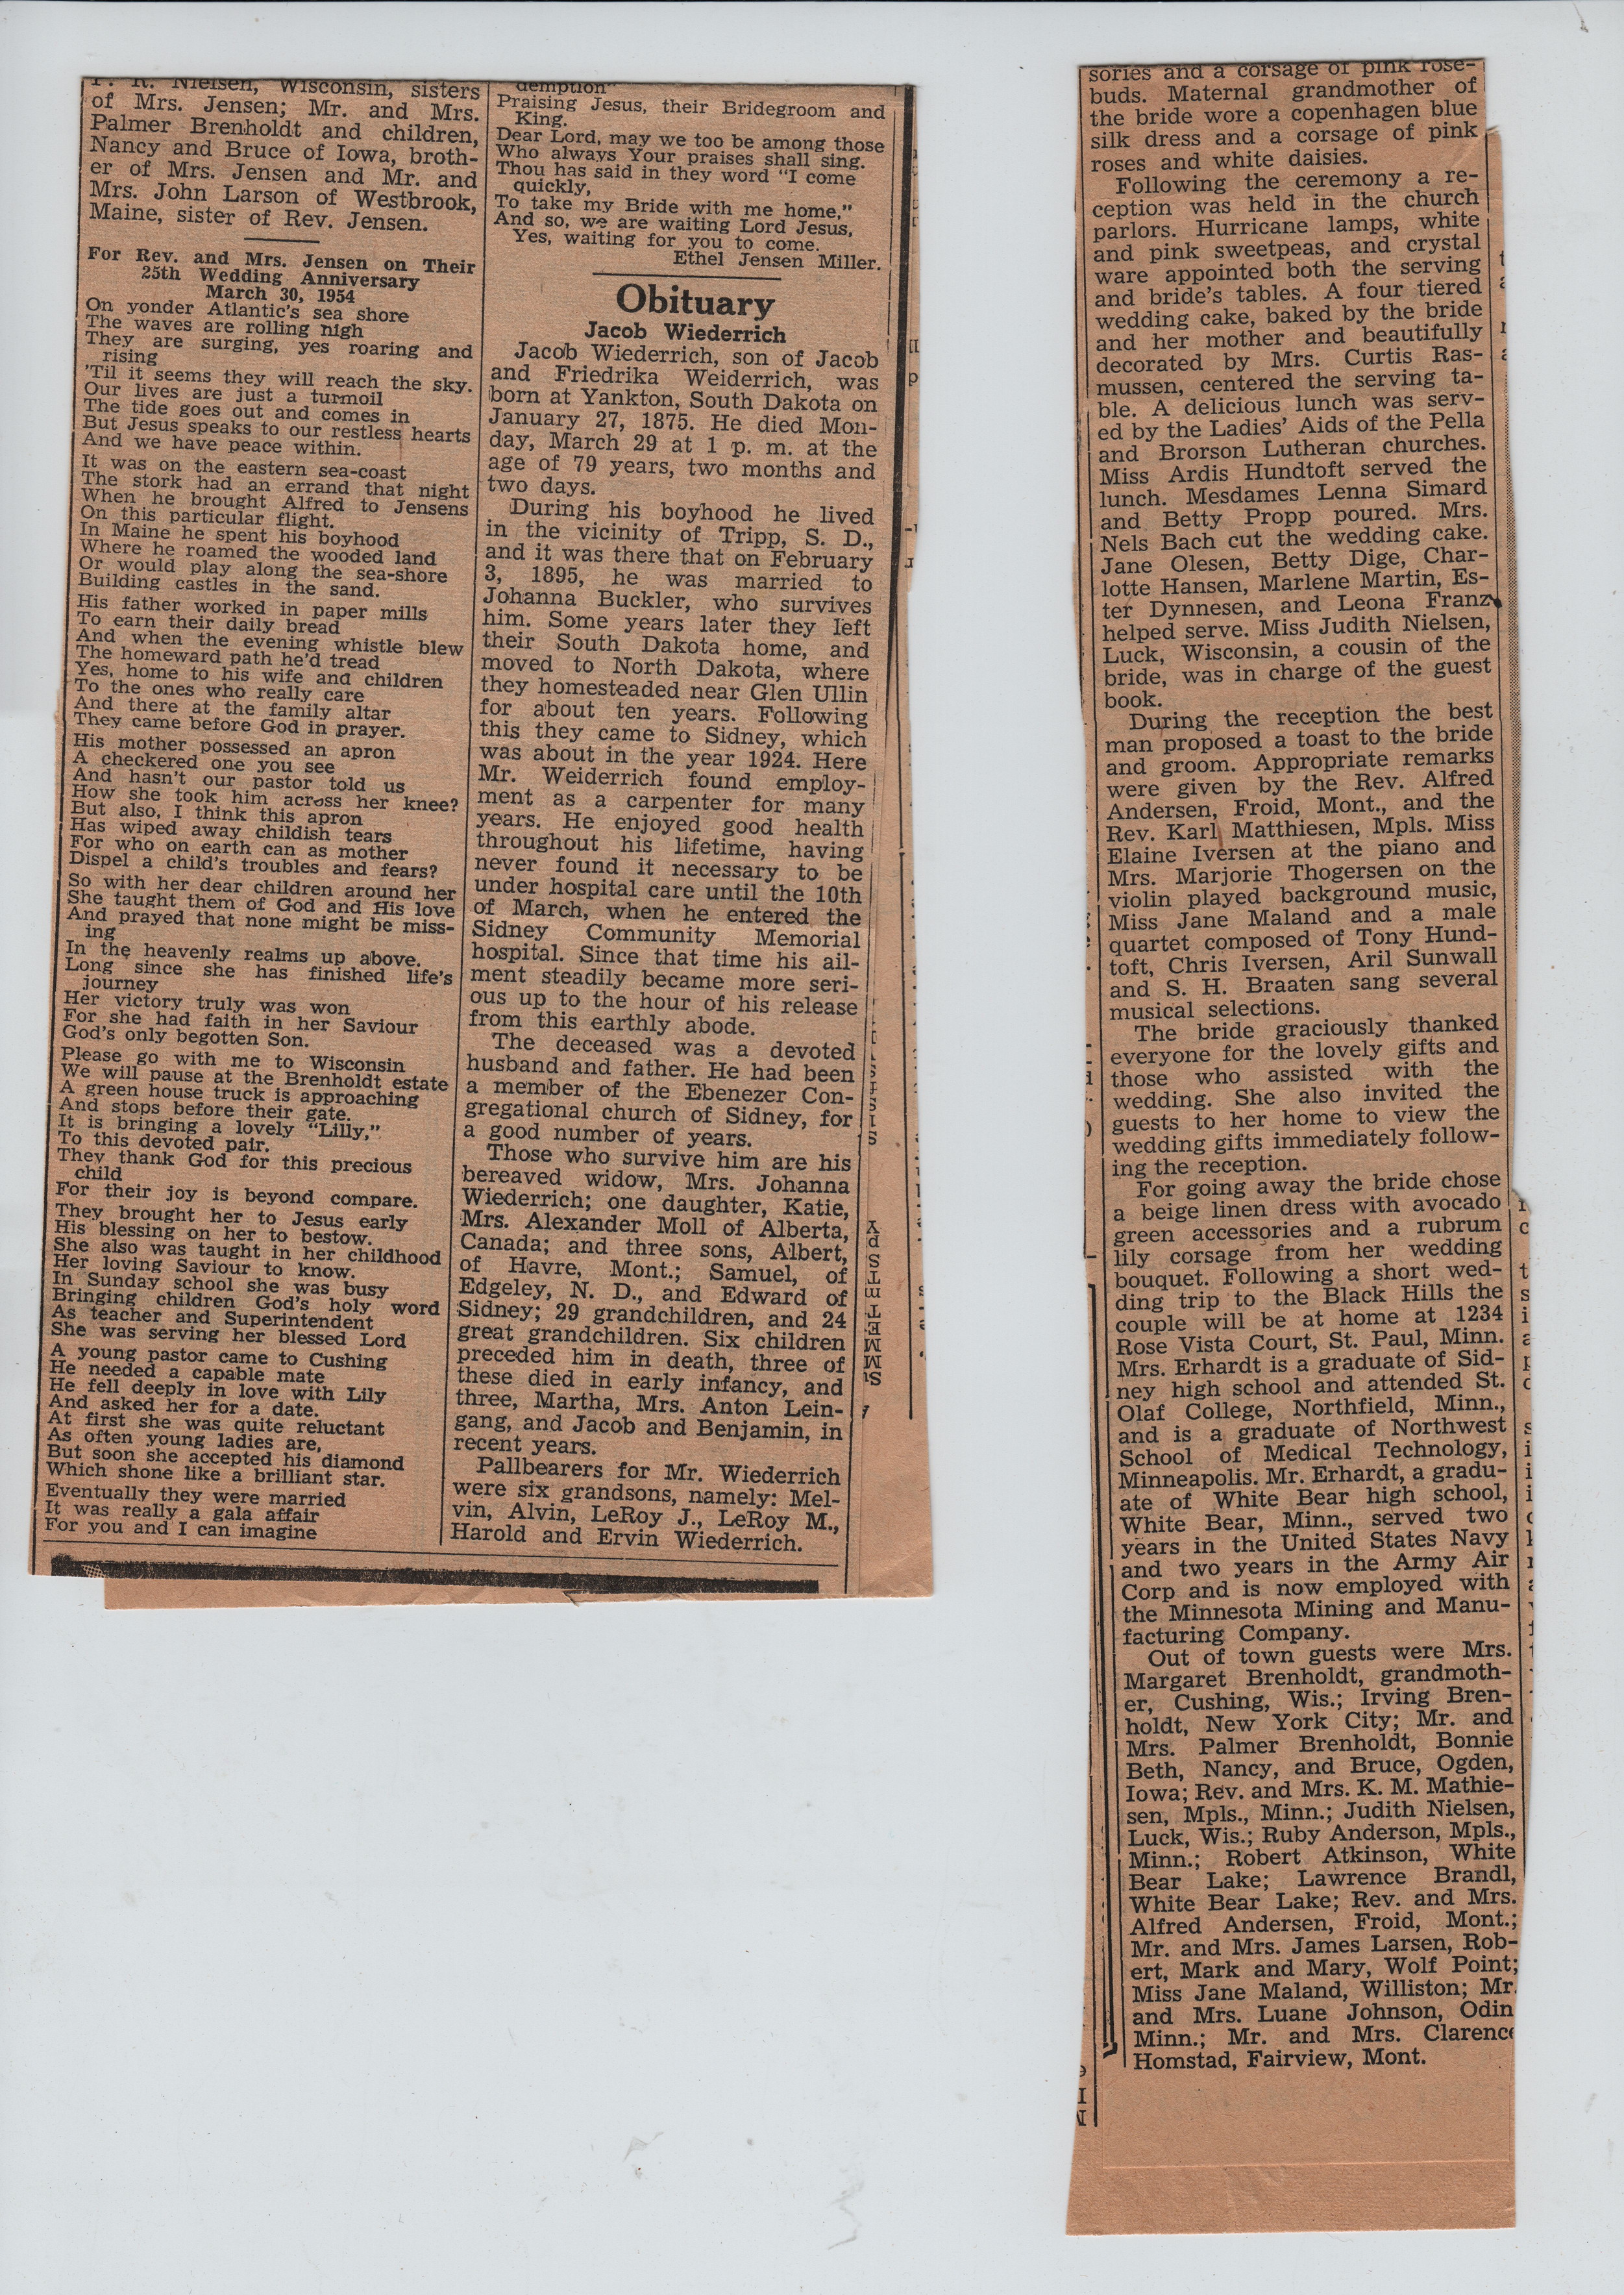 F. R. Nielsen, Wisconsin, sisters
of Mrs. Jensen; Mr. and Mrs.
Palmer Brenholdt and children,
Nancy and Bruce of Iowa, broth-
er of Mrs. Jensen and Mr. and
Mrs. John Larson of Westbrook,
Maine, sister of Rev. Jensen.
For Rev. and Mrs. Jensen on Their
25th Wedding Anniversary
March 30, 1954
On yonder Atlantic's sea shore
The waves are rolling nigh
They are surging, yes roaring and
rising
'Til it seems they will reach the sky.
Our lives are just a turmoil
The tide goes out and comes in
But Jesus speaks to our restless hearts
And we have peace within.
It was on the eastern sea-coast
The stork had an errand that night
When he brought Alfred to Jensens
On this particular flight.
In Maine he spent his boyhood
Where he roamed the wooded land
Or would play along the sea-shore
Building castles in the sand.
His father worked in paper mills
To earn their daily bread
And when the evening whistle blew
The homeward path he'd tread
Yes, home to his wife and children
To the ones who really care
And there at the family altar
They came before God in prayer.
His mother possessed an apron
A checkered one you see
And hasn't our pastor told us
How she took him across her knee?
But also, I think this apron
Has wiped away childish tears
For who on earth can as mother
Dispel a child's troubles and fears?
So with her dear children around her
She taught them of God and His love
And prayed that none might be miss-
ing
In the heavenly realms up above.
Long since she has finished life's
journey
Her victory truly was won
For she had faith in her Saviour
God's only begotten Son.
Please go with me to Wisconsin
We will pause at the Brenholdt estate
A green house truck is approaching
And stops before their gate.
It is bringing a lovely "Lilly,"
To this devoted pair.
They thank God for this precious
child
For their joy is beyond compare.
They brought her to Jesus early
His blessing on her to bestow.
She also was taught in her childhood
Her loving Saviour to know.
In Sunday school she was busy
Bringing children God's holy word
As teacher and Superintendent
She was serving her blessed Lord
A young pastor came to Cushing
He needed a capable mate
He fell deeply in love with Lily
And asked her for a date.
At first she was quite reluctant
As often young ladies are,
But soon she accepted his diamond
Which shone like a brilliant star.
Eventually they were married
It was really a gala affair
For you and I can imagine
demption"
Praising Jesus, their Bridegroom and
King.
Dear Lord, may we too be among those
Who always Your praises shall sing.
Thou has said in they word "I come
quickly,
To take my Bride with me home,"
And so, we are waiting Lord Jesus,
Yes, waiting for you to come.
Ethel Jensen Miller.
Obituary
Jacob Wiederrich
Jacob Wiederrich, son of Jacob
and Friedrika Weiderrich, was
born at Yankton, South Dakota on
January 27, 1875. He died Mon-
day, March 29 at 1 p. m. at the
age of 79 years, two months and
two days.
During his boyhood he lived
in the vicinity of Tripp, S. D.,
and it was there that on February
3, 1895, he was married to
Johanna Buckler, who survives
him. Some years later they left
their South Dakota home, and
moved to North Dakota, where
they homesteaded near Glen Ullin
for about ten years. Following
this they came to Sidney, which
was about in the year 1924. Here
Mr. Weiderrich found employ-
ment as a carpenter for many
years. He enjoyed good health
throughout his lifetime, having
never found it necessary to be
under hospital care until the 10th
of March, when he entered the
Sidney Community Memorial
hospital. Since that time his ail-
ment steadily became more seri-
ous up to the hour of his release
from this earthly abode.
The deceased was a devoted
husband and father. He had been
a member of the Ebenezer Con-
gregational church of Sidney, for
a good number of years.
Those who survive him are his
bereaved widow, Mrs. Johanna
Wiederrich; one daughter, Katie,
Mrs. Alexander Moll of Alberta,
Canada; and three sons, Albert,
of Havre, Mont.; Samuel, of
Edgeley, N. D., and Edward of
Sidney; 29 grandchildren, and 24
great grandchildren. Six children
preceded him in death, three of
these died in early infancy, and
three, Martha, Mrs. Anton Lein-
gang, and Jacob and Benjamin, in
recent years.
Pallbearers for Mr. Wiederrich
were six grandsons, namely: Mel-
vin, Alvin, LeRoy J., LeRoy M.,
Harold and Ervin Wiederrich.
sories and a corsage of pink rose-
buds. Maternal grandmother of
the bride wore a copenhagen blue
silk dress and a corsage of pink
roses and white daisies.
Following the ceremony a re-
ception was held in the church
parlors. Hurricane lamps, white
and pink sweetpeas, and crystal
ware appointed both the serving
and bride's tables. A four tiered
wedding cake, baked by the bride
and her mother and beautifully
decorated by Mrs. Curtis Ras-
mussen, centered the serving ta-
ble. A delicious lunch was serv-
ed by the Ladies' Aids of the Pella
and Brorson Lutheran churches.
Miss Ardis Hundtoft served the
lunch. Mesdames Lenna Simard
and Betty Propp poured. Mrs.
Nels Bach cut the wedding cake.
Jane Olesen, Betty Dige, Char-
lotte Hansen, Marlene Martin, Es-
ter Dynnesen, and Leona Franz
helped serve. Miss Judith Nielsen,
Luck, Wisconsin, a cousin of the
bride, was in charge of the guest
book.
During the reception the best
man proposed a toast to the bride
and groom. Appropriate remarks
were given by the Rev. Alfred
Andersen, Froid, Mont., and the
Rev. Karl Matthiesen, Mpls. Miss
Elaine Iversen at the piano and
Mrs. Marjorie Thogersen on the
violin played background music,
Miss Jane Maland and a male
quartet composed of Tony Hund-
toft, Chris Iversen, Aril Sunwall
and S. H. Braaten sang several
musical selections.
The bride graciously thanked
everyone for the lovely gifts and
those who assisted with the
wedding. She also invited the
guests to her home to view the
wedding gifts immediately follow-
ing the reception.
For going away the bride chose
a beige linen dress with avocado
green accessories and a rubrum
lily corsage from her wedding
bouquet. Following a short wed-
ding trip to the Black Hills the
couple will be at home at 1234
Rose Vista Court, St. Paul, Minn.
Mrs. Erhardt is a graduate of Sid-
ney high school and attended St.
Olaf College, Northfield, Minn.,
and is a graduate of Northwest
School of Medical Technology,
Minneapolis. Mr. Erhardt, a gradu-
ate of White Bear high school,
White Bear, Minn., served two
years in the United States Navy
and two years in the Army Air
Corp and is now employed with
the Minnesota Mining and Manu-
facturing Company.
Out of town guests were Mrs.
Margaret Brenholdt, grandmoth-
er, Cushing, Wis.; Irving Bren-
holdt, New York City; Mr. and
Mrs. Palmer Brenholdt, Bonnie
Beth, Nancy, and Bruce, Ogden,
Iowa; Rev. and Mrs. K. M. Mathie-
sen, Mpls., Minn.; Judith Nielsen,
Luck, Wis.; Ruby Anderson, Mpls.,
Minn.; Robert Atkinson, White
Bear Lake; Lawrence Brandl,
White Bear Lake; Rev. and Mrs.
Alfred Andersen, Froid, Mont.;
Mr. and Mrs. James Larsen, Rob-
ert, Mark and Mary, Wolf Point;
Miss Jane Maland, Williston; Mr.
and Mrs. Luane Johnson, Odin
Minn.; Mr. and Mrs. Clarence
Homstad, Fairview, Mont.